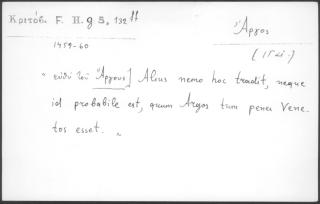 Κριτόβ. F. H. G 5, 132 ff
Ἄργος
1459-60
(ΙΣΤ.)
" εὐθὺ τοῦ "Ἄργους] Alius nemo hoc tradit, neque
id probabile est, quum Argos tum penes Vene-
tos esset. "